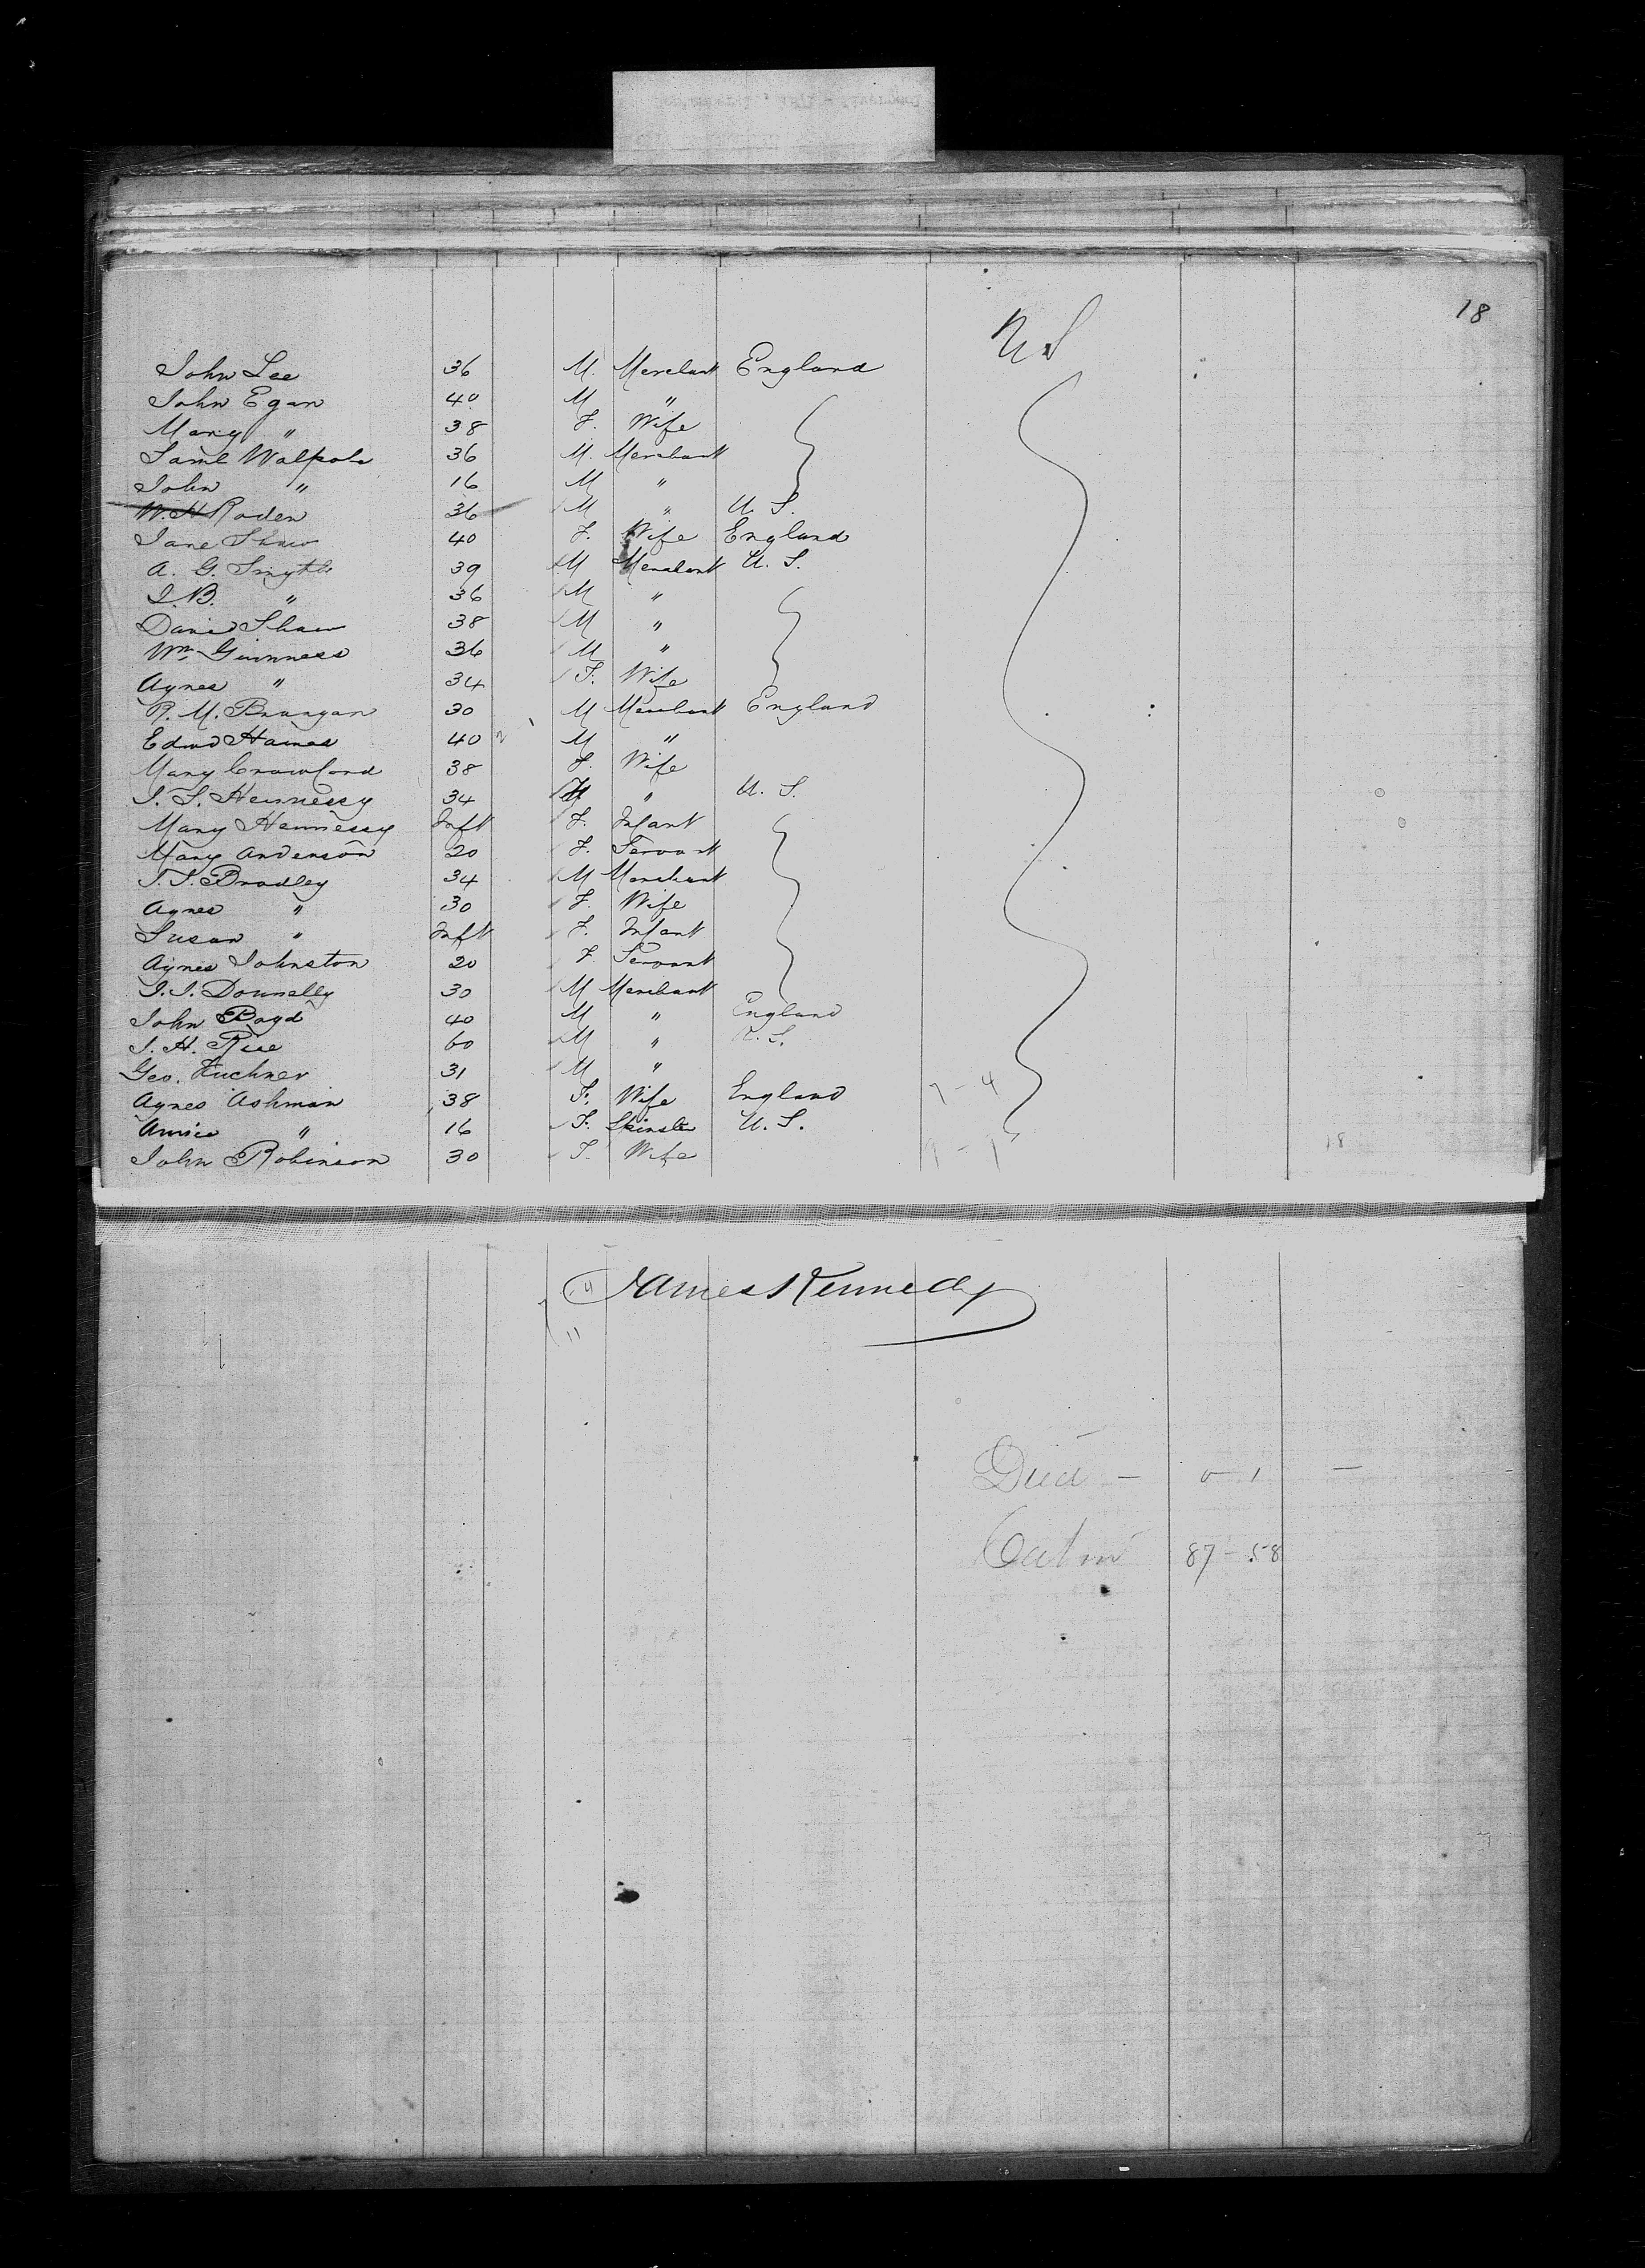 18
U S
John Lee 36 M. Merchant England
John Egan 40 M "
Mary " 38 F. Wife
Saml Walpole 36 M. Merchant
John " 16 M "
W. H Roden 36 M " U. S.
Jane Shaw 40 F. Wife England
A. G. Smythe 39 M Merchant U. S.
J. B. " 36 M "
David Shaw 38 M "
Wm Guinness 36 M "
Agnes " 34 F. Wife
R. M. Brangan 30 M Merchant England
Edwd Haines 40 M "
Mary Crawford 38 F. Wife
J. S. Hennessy 34 " U. S.
Mary Hennessy Inft F. Infant
Mary Anderson 20 F. Servant
J. J. Bradley 34 M Merchant
Agnes " 30 F. Wife
Susan " Inft F. Infant
Agnes Johnston 20 F. Servant
J. J. Donnelly 30 M Merchant
John Boyd 40 M " England
J. H. Rice 60 M " U. S.
Geo. 31 M "
Agnes Ashman 38 F. Wife England 7 - 4
Annie " 16 F. Spinster U. S.
John Robinson 30 F. Wife 9 - 1 18
James Kennedy
11
Died - 0 1 -
Cabin 87 - 58